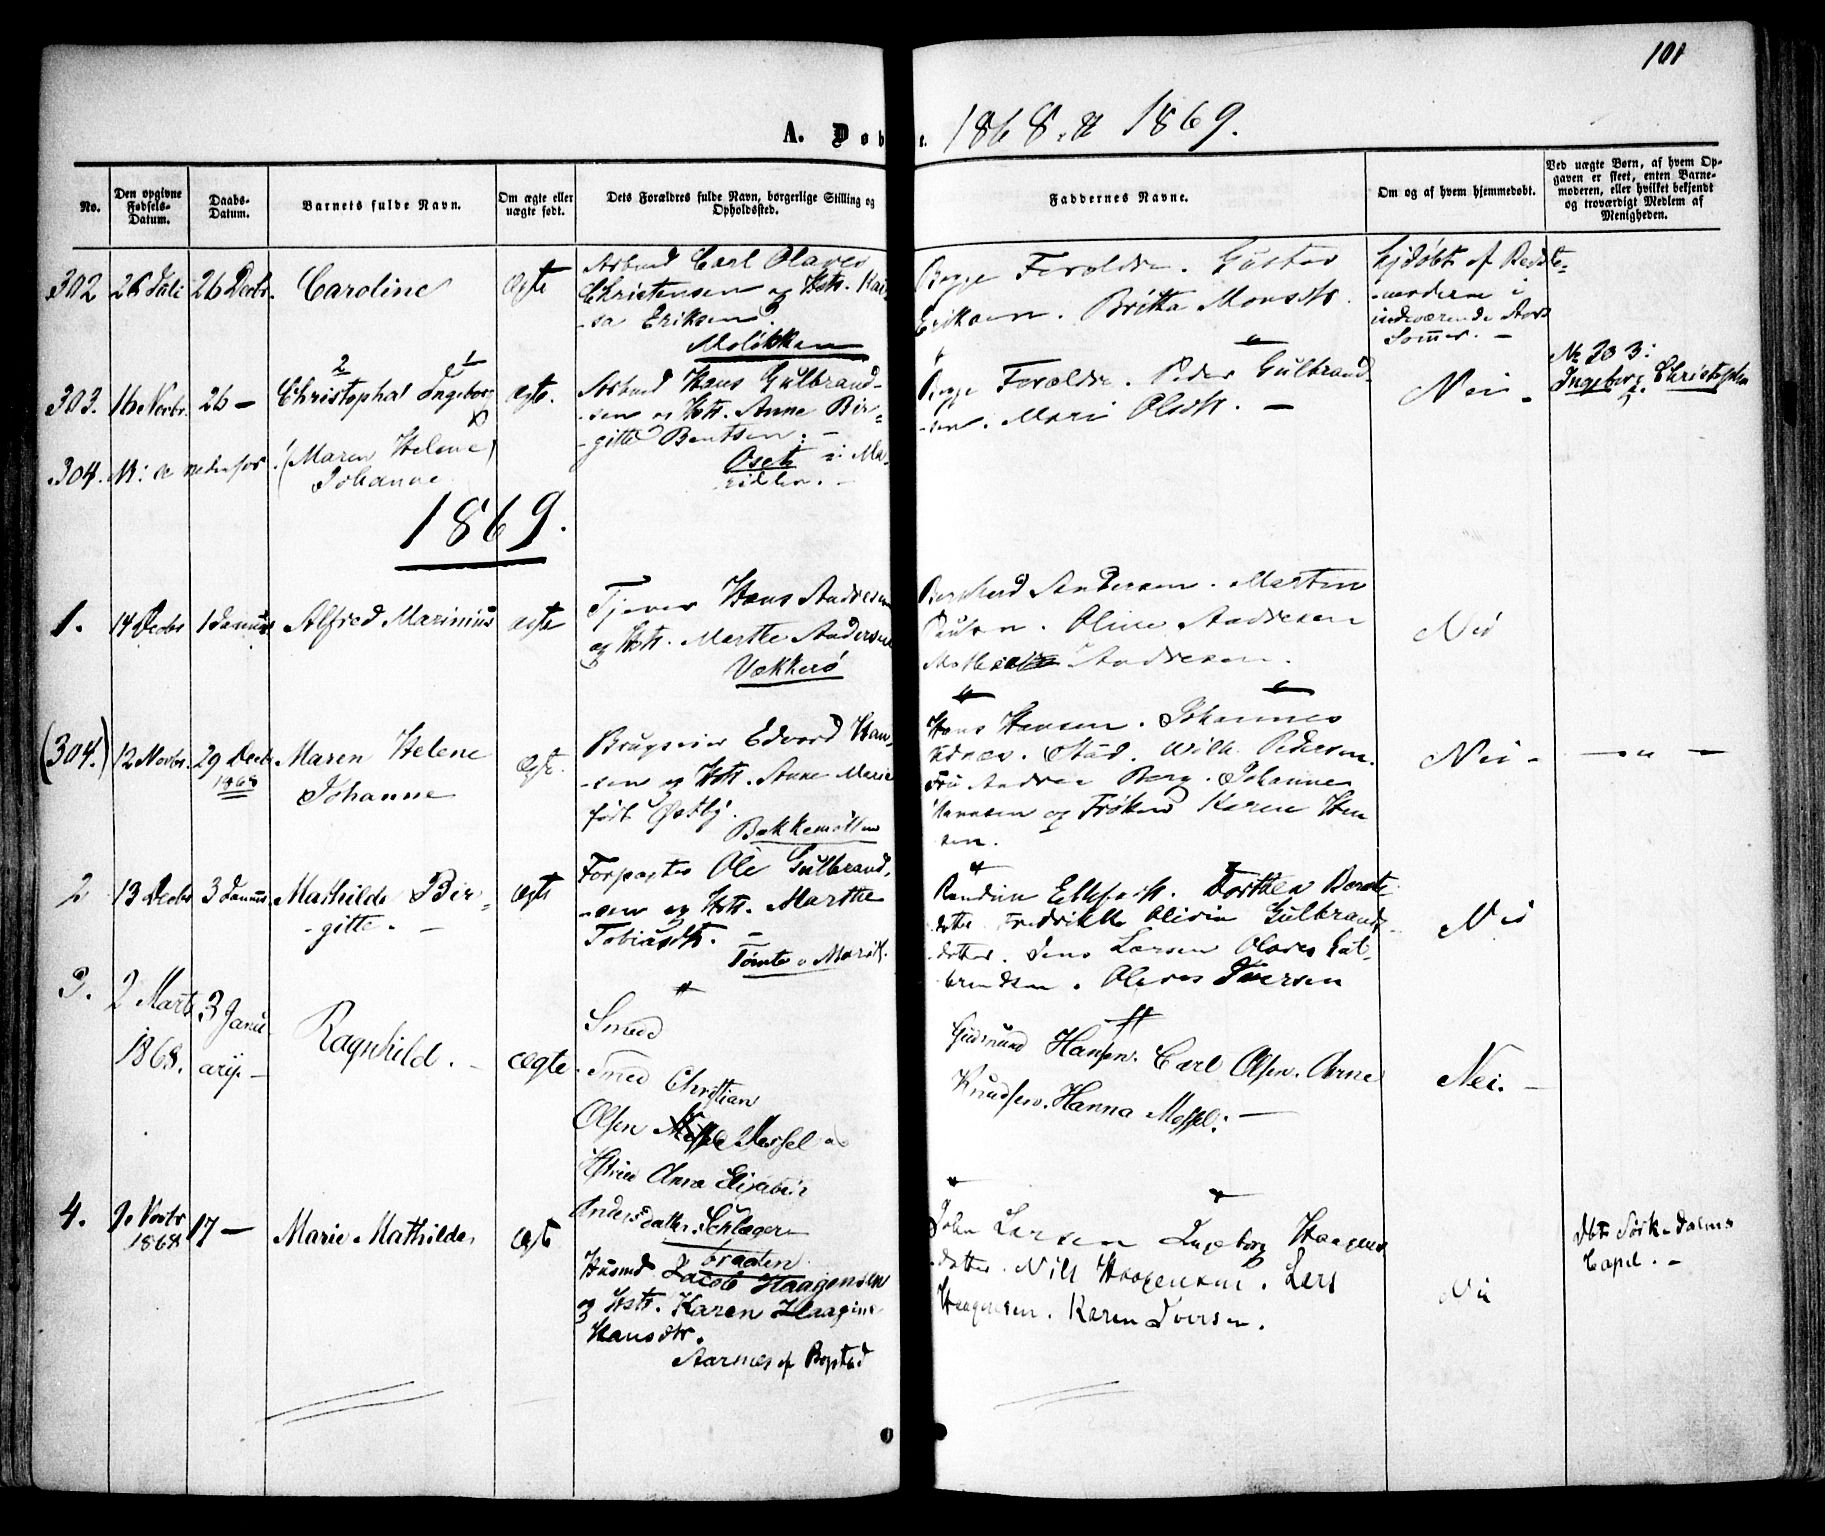 101
A. Døbte. 1868. & 1869.
No.
Den opgivne
Fødsels-
Datum.
Daabs-
Datum.
Barnets fulde Navn.
Om ægte eller
uægte født.
Dets Forældres fulde Navn, borgerlige Stilling og
Opholdssted.
Faddernes Navne.
Om og af hvem hjemmedøbt.
Ved uægte Børn, af hvem Op-
gaven er skeet, enten Barne-
moderen, eller hvilket bekjendt
og troværdigt Medlem af
Menigheden.
302 26 Juli 26 Decbr. Caroline Ægte
Arbmd Carl Olaves
Christensen og Hstr. Kai-
-sa Eriksen.
Moløkken
Begge Forældre. Gustav
Eriksen. Britha Monsdtr.
Hjdøbt af Bedste-
-moderen i
indeværende Aars
Sommer. -
303. 16 Novbr. 26 - Christopher Ingeborg ægte.
2 1
Arbmd Hans Gulbrand-
-sen og Hstr. Anne Bir-
-gitte Bentsen. -
Oset i Ma-
ridalen. -
Begge Forældre. Peder Gulbrand-
-sen. Mari Olsdtr. -
Nei -
No 303:
Ingeborg Christopher
304. nedenfor. (Maren Helene)
Johanne
1869.
1. 14 Decbr 1 Januar Alfred Marinius ægte
Tjener Hans Andresen
og Hstr. Marthe Andersen
Vækkerø
Bernhard Andersen. Marten
Paulsen. Oline Andresen
Andresen.
Nei
(304.) 12 Novbr. 29 Decbr
1868
Maren Helene
Johanne
Ægte.
Brugseier Edvard Han-
-sen og Hstr. Anne Marie
født Østby.
Bakkemøllen
Hans Hansen. Johannes
Stud. Wilh. Pedersen.
Fru Andrea Berg. Johanne
Hannsen og Frøken Karen Han
sen.
Nei -
- " -
2 13 Decbr 3 Januar Mathilde Bir-
-gitte. -
ægte
Forpagter Ole Gulbrand-
-sen og Hstr. Marthe
Tobiasdtr. -
Tømte i Marid.
Randine Dorthea Bernts-
datter Fredrikke Olivia Gulbrands-
-datter. Jens Larsen Olaves Gul-
brandsen. Olaves Iversen
Nei
3. 2 Marts
1868.
3 Janu
arij -
Ragnhild. -
ægte
Smed
Smed Christian
Olsen Messel og
Hstru Anna Elisabeth
Andersdatter. Schlæger
braaten.
Gudmund Hansen. Carl Olsen. Arne
Knudsen. Hanna Messel. -
Nei. -
4. 9. Novbr
1868
17 -
Marie Mathilde
ægte
Husmd Jacob Haagensen
og Hstr. Karen Haagine
Hansdtr.
Aarnes af Bogstad
John Larsen Ingeborg Haagens
datter. Nils Haagensen. Lars
Haagensen. Karen Iversen.
Nei
Dbt i Sørkedalens
Capel. -